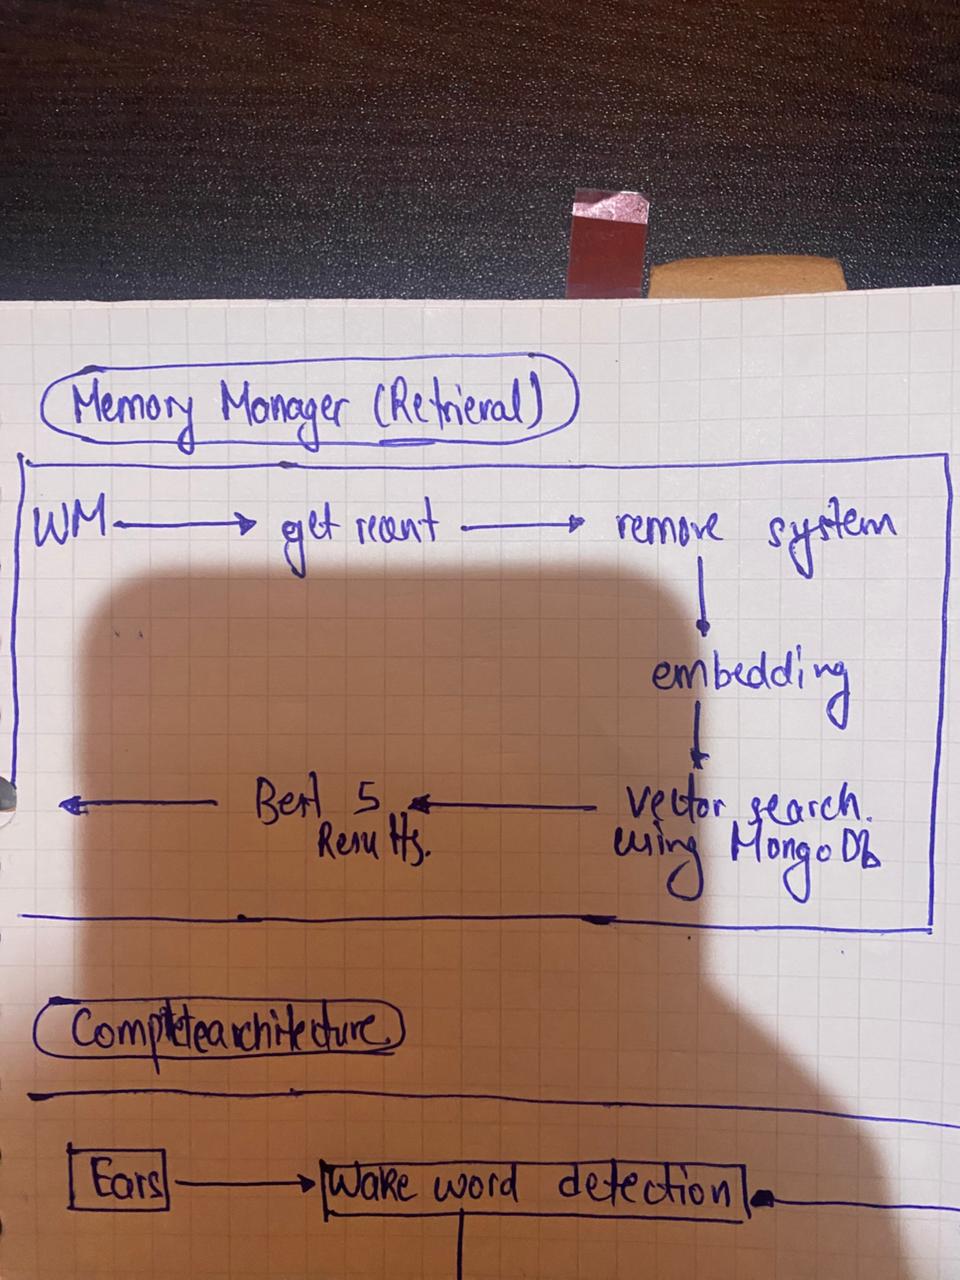 Memory Manager (Retrieval)
WM get recent remove system
embedding
Best 5 vector search.
Results. using MongoDb
Complete architecture
Ears Wake word detection